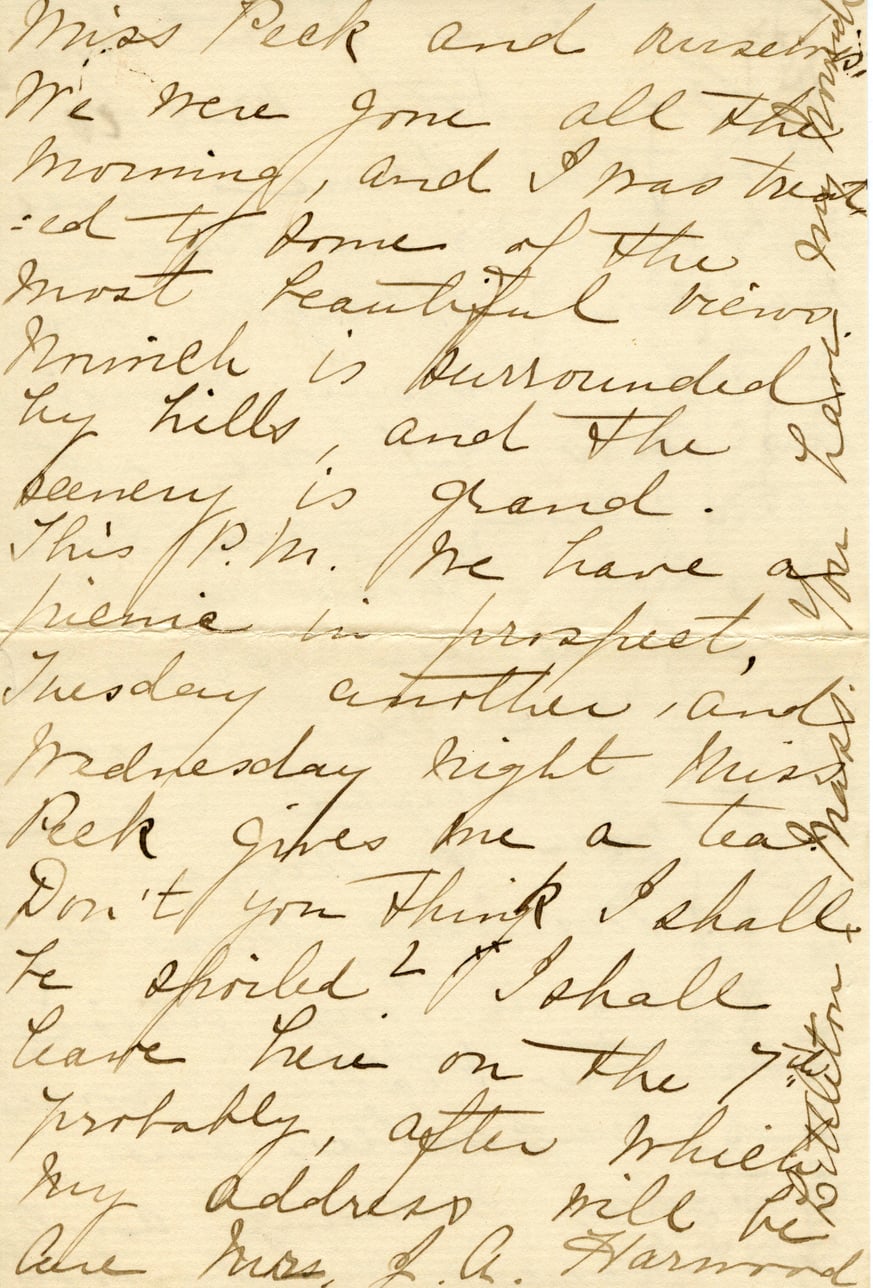 Miss Peck and ourselves.
We were gone all the
morning, and I was treat
=ed to some of the
most beautiful views.
Norwich is surrounded
by hills, and the
scenery is grand.
This P.M. we have a
picnic in prospect,
Tuesday another, and
Wednesday night Miss
Peck gives me a tea.
Don't you think I shall
be spoiled? I shall
leave here on the 7th
probably, after which
my address will be
Care Mrs. J. A. Harwood
Littleton Mass. You have my Norwich